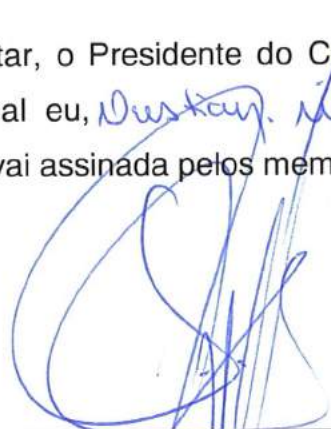 tar, o Presidente do C
al eu,
vai assinada pelos mem